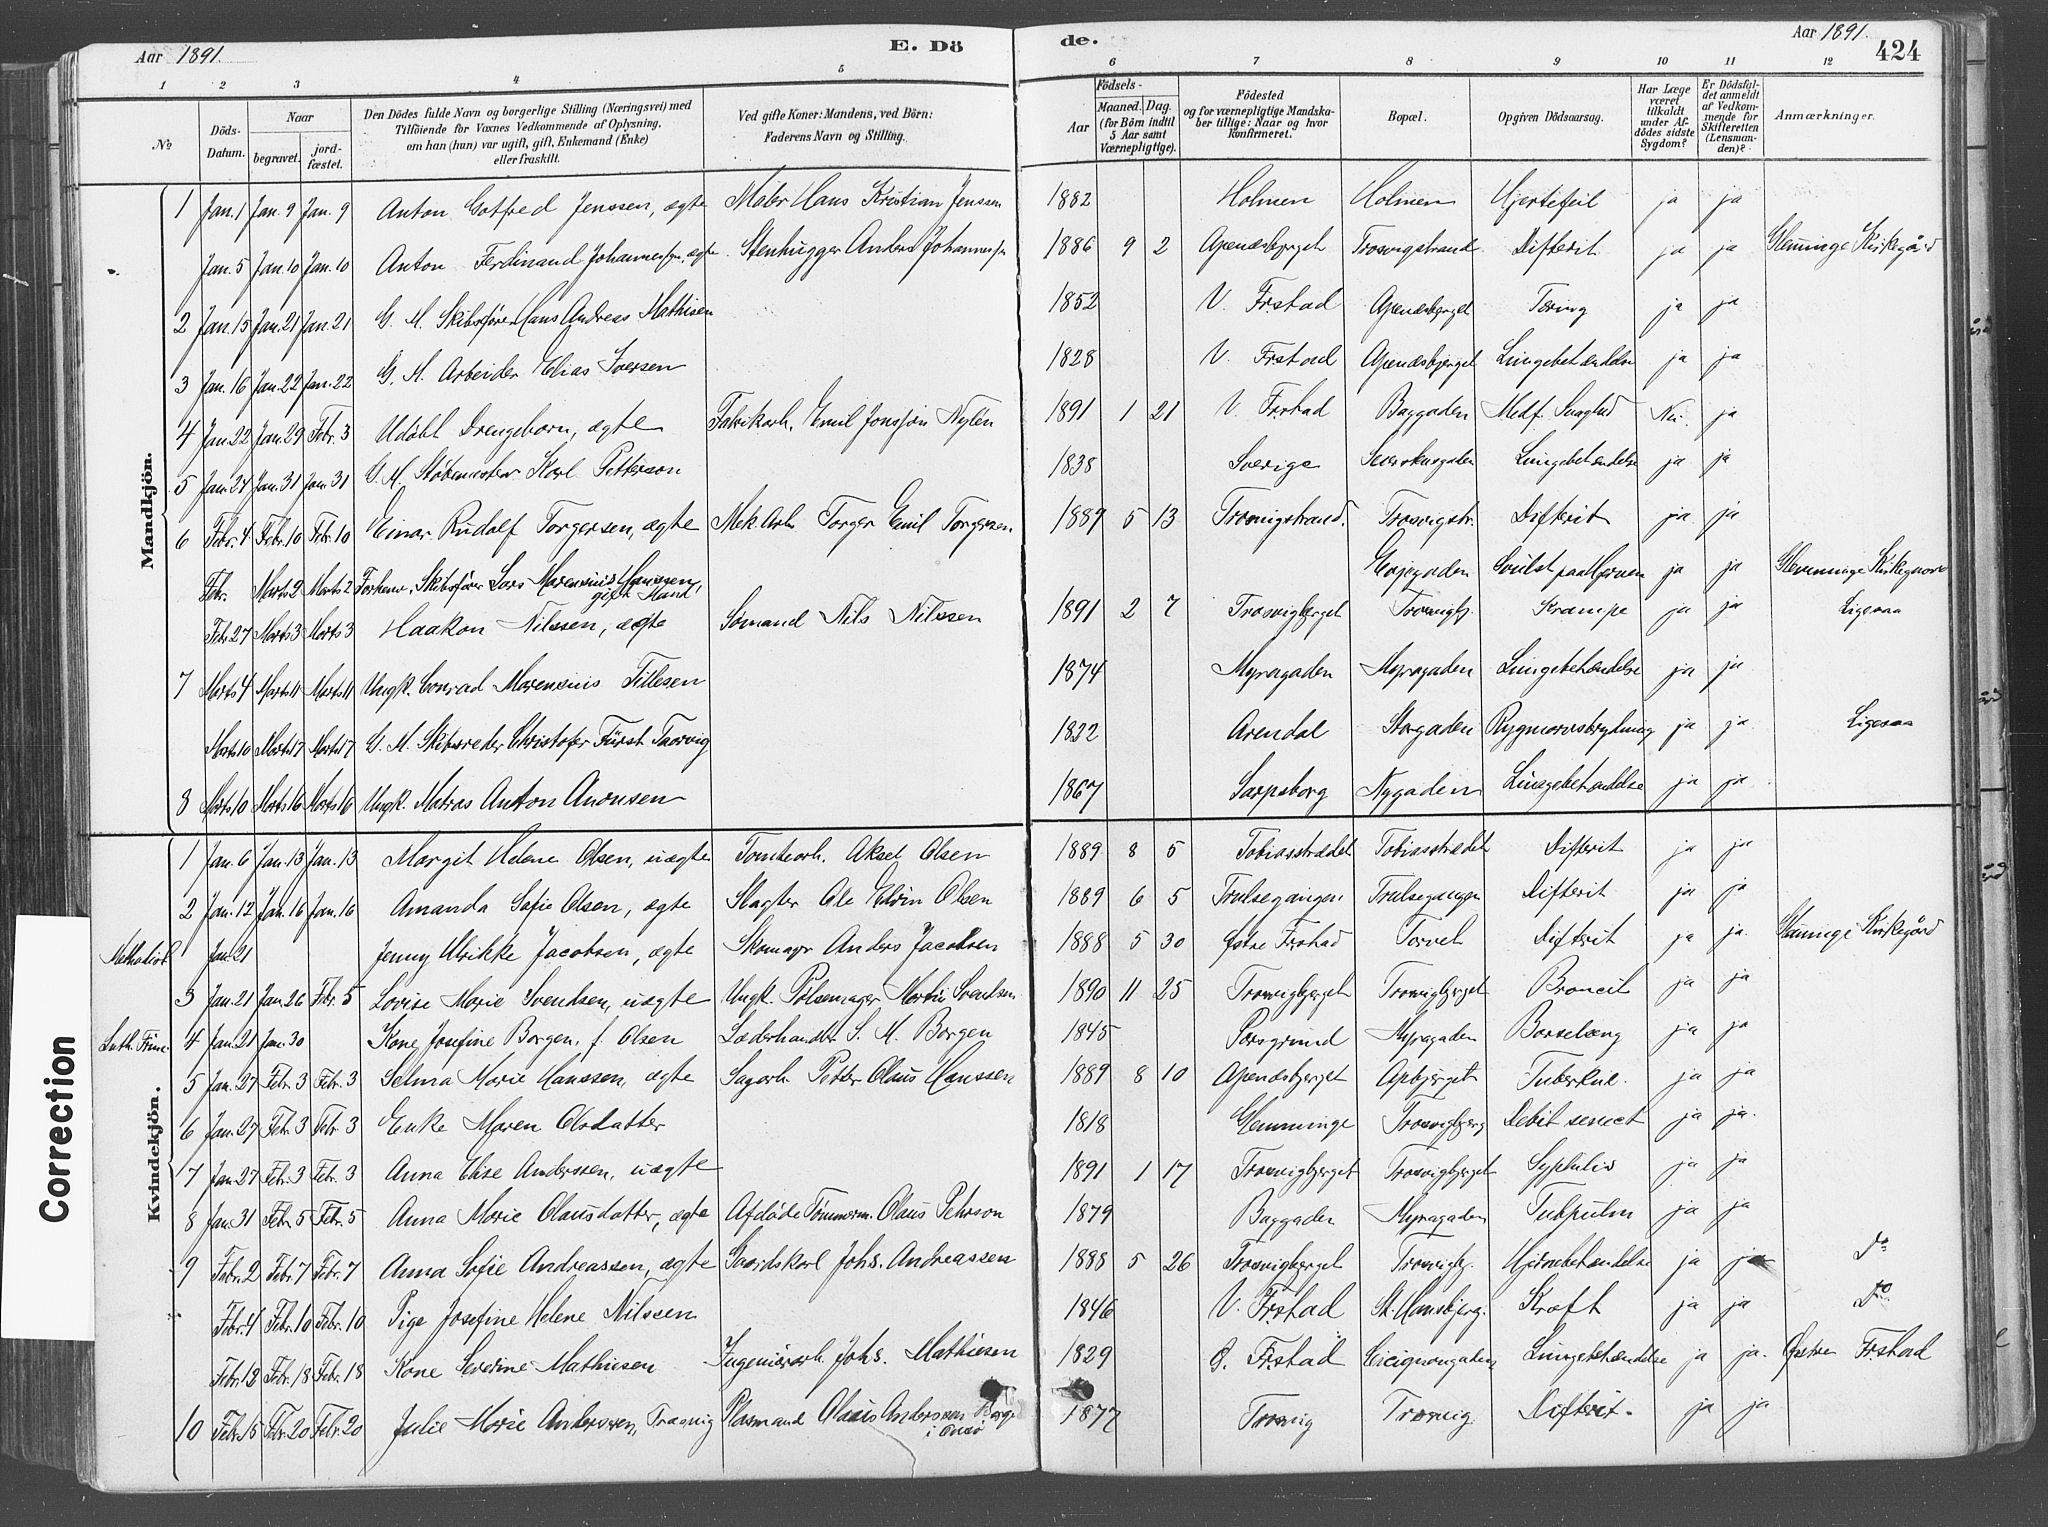 Aar 1891. E. Dö de. Aar 1891. 424
1 2 3 4 5 6 7 8 9 10 11 12
№ Döds-Datum. Naar begravet. jord-fæstet. Den Dödes fulde Navn og borgerlige Stilling (Næringsvei) med Tilföiende for Voxnes Vedkommende af Oplysning, om han (hun) var ugift, gift, Enkemand (Enke) eller fraskilt. Ved gifte Koner: Mandens, ved Börn: Faderens Navn og Stilling. Födsels- Aar Maaned. Dag. (for Börn indtil 5 Aar samt Værnepligtige). Födested og for værnepligtige Mandskaber tillige: Naar og hvor Konfirmeret. Bopæl. Opgiven Dödsaarsag. Har Læge været tilkaldt under Afdödes sidste Sygdom? Er Dödsfaldet anmeldt af Vedkommende for Skifteretten (Lensmanden)? Anmærkninger.
Mandkjön.
1 Jan. 1 Jan. 9 Jan. 9 Anton Gotfred Jenssen, ægte Maler Hans Kristian Jenssen 1882 Holmen Holmen Hjertefeil ja ja
Jan. 5 Jan. 10 Jan. 10 Anton Ferdinand Johannessen, ægte Stenhugger Anders Johannessen 1886 9 2 Apenæsbjerget Trosvigstrand Difterit ja ja Glemminge Kirkegård
2 Jan. 15 Jan. 21 Jan. 21 G. M. Skibsfører Hans Andreas Mathisen 1852 V. Frstad Apenæsbjerget Tæring ja ja
3 Jan. 16 Jan. 22 Jan. 22 G. M. Arbeider Elias Iversen 1828 V. Frstad Apenæsbjerget Lungebetændelse ja ja
4 Jan. 22 Jan. 29 Febr. 3 Udöbt Drengebarn, ægte Fabrikarb. Emil Jonsson Nylén 1891 1 21 V. Frstad Baggaden Medf. Svaghed Nei. ja
5 Jan. 24 Jan. 31 Jan. 31 G. M. Støbemester Karl Petterson 1838 Sverige Lungebetændelse ja ja
6 Febr. 4 Febr. 10 Febr. 10 Einar Rudolf Torgersen, ægte Mek. Arb. Torger Emil Torgersen 1889 5 13 Trosvigstrand. Trosvigstr. Difterit ja. ja
Febr. Marts 2 Marts 2 Forhenv. Skibsfører Lars Marensius Hanssen, gift Mand Evjegaden Svulst paa Hjernen ja ja Glemminge Kirkegaard
Febr. 27 Marts 3 Marts 3 Haakon Nilssen, ægte Sømand Nils Nilssen 1891 2 7 Trosvigbjerget Trosvigbj. Krampe ja ja Ligesaa
7 Marts 4 Marts 11 Marts 11 Ungk. Conrad Marensius Tillesen 1874 Myragaden Myragaden Lungebetændelse ja ja
Marts 10 Marts 17 Marts 17 G. M. Skibsreder Christofer Fürst Taarvig 1832 Arendal Storgaden Rygmarvsbetændelse ja ja Ligesaa
8 Marts 10 Marts 16 Marts 16 Ungk. Matros Anton Anonsen 1867 Sarpsborg Nygaden Lungebetændelse ja ja
Kvindekjön.
1 Jan. 6 Jan. 13 Jan. 13 Margit Helene Olsen, uægte Tomtearb. Aksel Olsen 1889 8 5 Tobiasstrædet Tobiasstrædet Difterit ja ja
2 Jan. 12 Jan. 16 Jan. 16 Amanda Sofie Olsen, ægte Slagter Ole Edvin Olsen 1889 6 5 Trulsegangen Trulsegangen Difterit ja ja
Methodist Jan. 21 Jenny Ulrikke Jacobsen, ægte Skomagr Anders Jacobsen 1888 5 30 Østre Frstad Torvet Difterit ja ja. Glemminge Kirkegård
3 Jan. 21 Jan. 26 Febr. 5 Lovise Marie Svendsen, uægte Ungk. Pølsemager Martin Svendsen 1890 11 25 Trosvigbjerget Trosvigbjerget Broncit ja ja
Luth. Frim. 4 Jan. 21 Jan. 30 Kone Josefine Borgen, f. Olsen Læderhandler S. M. Borgen 1845 Porsgrund Myragaden Barselseng ja ja
5 Jan. 27 Febr. 3 Febr. 3 Selma Marie Hanssen, ægte Sagarb. Petter Claus Hanssen 1889 8 10 Apenæsbjerget Apbjerget Tuberkul. ja ja
6 Jan. 27 Febr. 3 Febr. 3 Enke Maren Olsdatter 1818 Glemminge Trosvigbjerg Debil senect ja ja.
7 Jan. 27 Febr. 3 Febr. 3 Anna Elise Anderssen, uægte 1891 1 17 Trosvigbjerget Trosvigbjerget Syphilis ja ja
8 Jan. 31 Febr. 5 Febr. 5 Anna Marie Olausdatter, ægte Afdöde Tömmerm. Olaus Pehrson 1879 Baggaden Myragaden Tubpulm ja ja
9 Febr. 2 Febr. 7 Febr. 7 Anna Sofie Andreassen, ægte Gaardskarl Johs. Andreassen 1888 5 26 Trosvigbjerget Trosvigbj. Hjernebetændelse ja ja Do
Febr. 4 Febr. 10 Febr. 10 Pige Josefine Helene Nilssen 1846 V. Frstad St. Hansbjerg. Kræft ja ja Do
Febr. 12 Febr. 18 Febr. 18 Kone Severine Mathiesen Ingeniørarb. Johs. Mathiesen 1829 Ø. Frstad Cicignongaden Lungebetændelse ja ja. Østre Frstad
10 Febr. 15 Febr. 20 Febr. 20 Julie Marie Anderssen, Trosvig Pladsmand Olaus Anderssen Borge i Onsø 1877 Trosvig Trosvig Difterit. ja ja
Correction